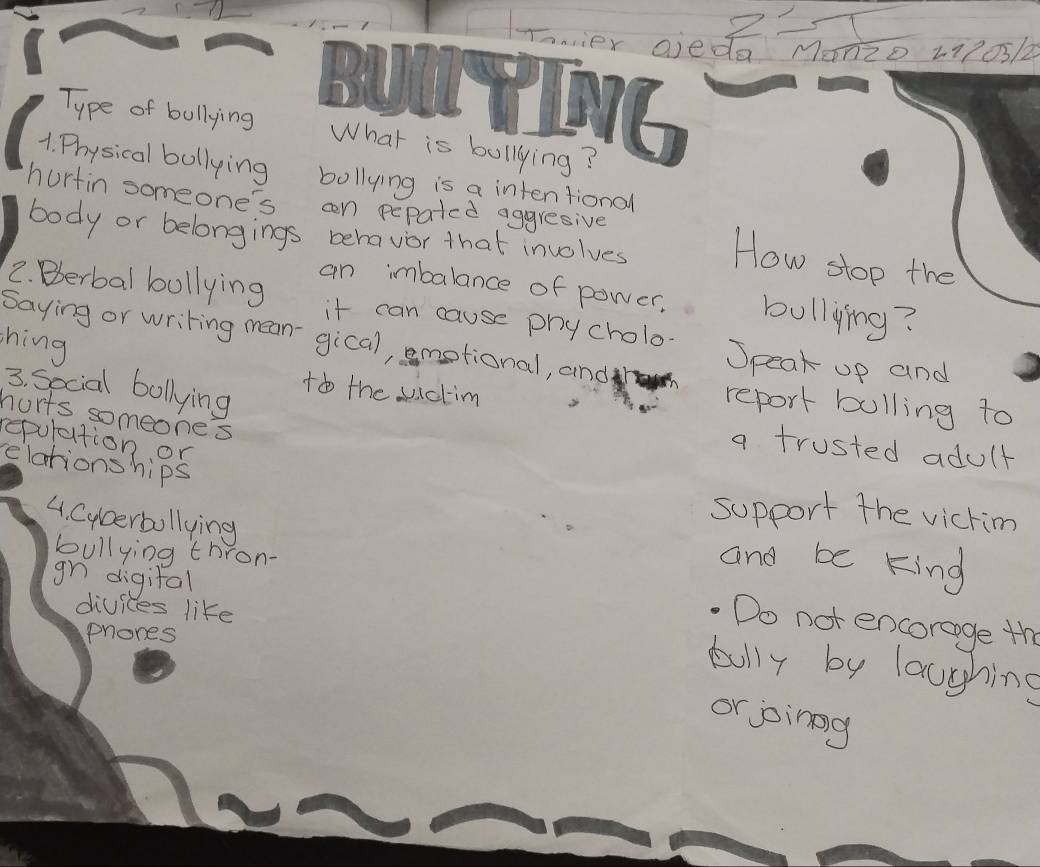 2
Javier ojeda Manzo 27/05/2
BULLYING
Type of bullying
1. Physical bullying
hurtin someone's
body or belongings
2. Berbal bullying
Saying or writing mean-
hing
3. Social bullying
hurts someone's
reputation or
elationships
4. Cyberbullying
bullying thron-
gh digital
divices like
phones
What is bullying?
bollying is a intentional
an pepated aggresive
behavior that involves
an imbalance of power.
it can cause phycholo-
gical, emotional, and harm
to the victim
How stop the
bulliying?
Speak up and
report bulling to
a trusted adult
support the victim
and be king
• Do not encorage the
bully by laughing
or joinog